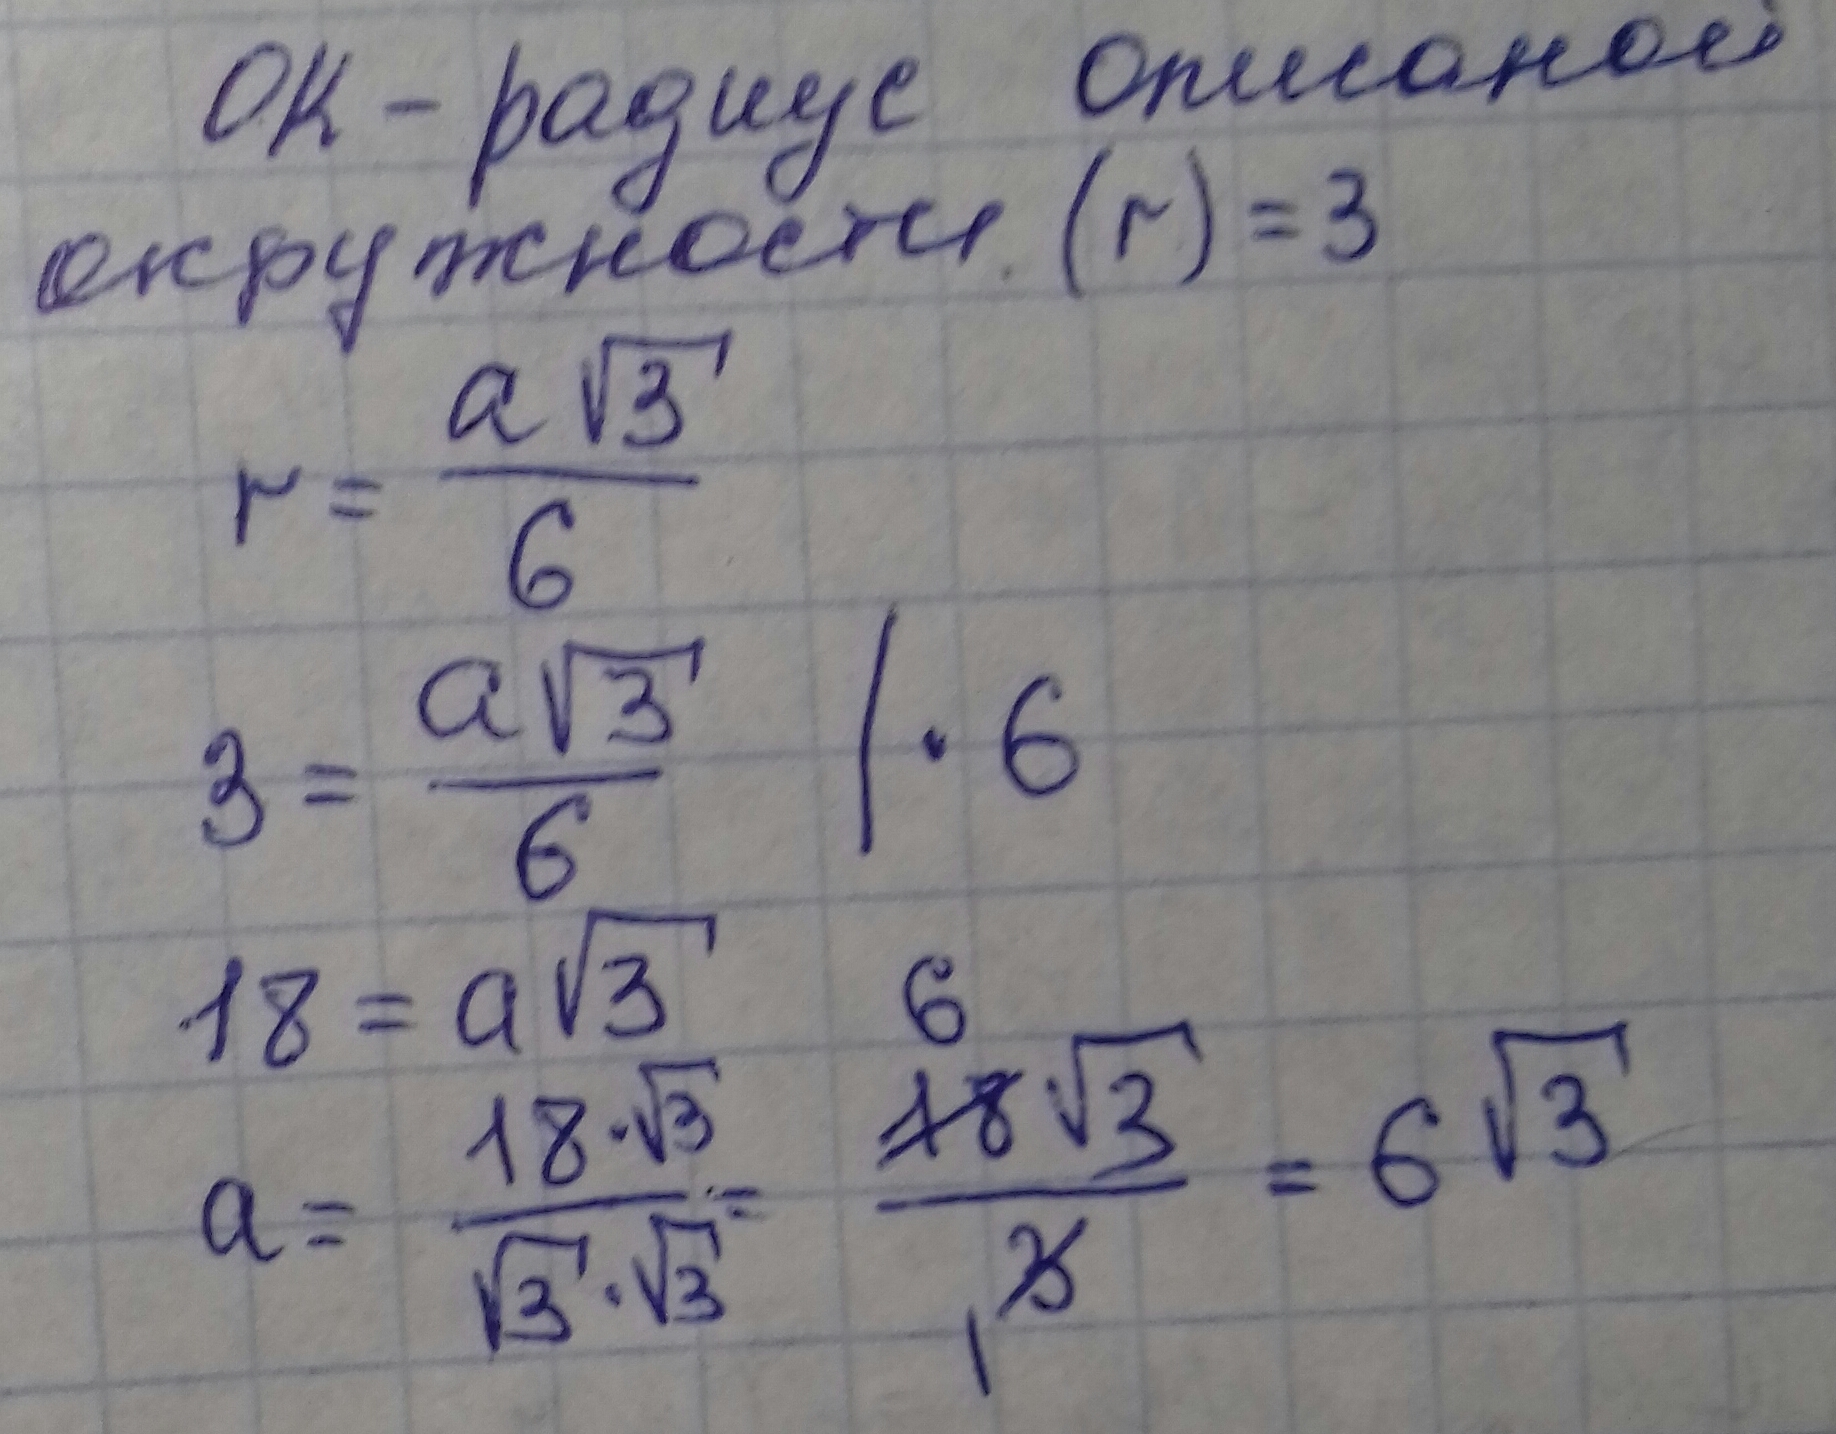 ОК - радиус описаной
окружности (r) = 3
r = a√3 / 6
3 = a√3 / 6 | · 6
18 = a√3
a = 18·√3 / √3·√3 = 6 18√3 / 1 3 = 6√3